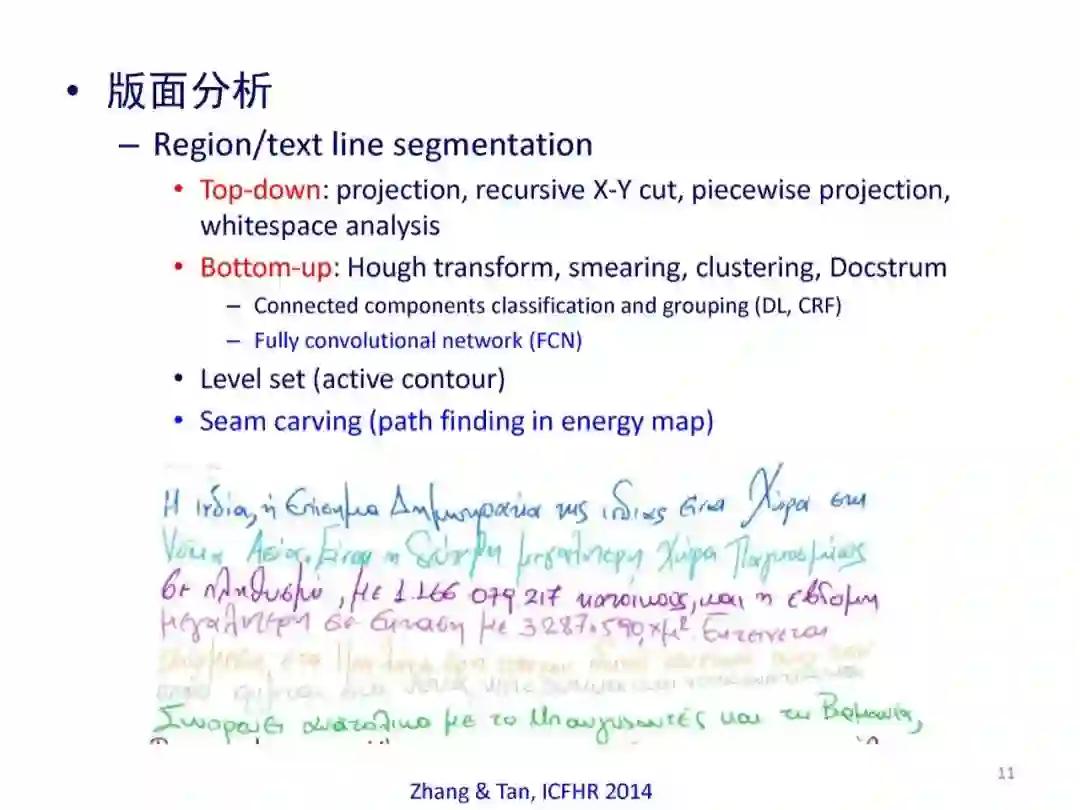 • 版面分析
– Region/text line segmentation
• Top-down: projection, recursive X-Y cut, piecewise projection,
whitespace analysis
• Bottom-up: Hough transform, smearing, clustering, Docstrum
– Connected components classification and grouping (DL, CRF)
– Fully convolutional network (FCN)
• Level set (active contour)
• Seam carving (path finding in energy map)
Η Ινδία, ή Επίσημα Δημοκρατία της ινδίας είναι Χώρα στη
Νότια Ασία. Είναι η δεύτερη μεγαλύτερη Χώρα Παγκοσμίως
σε πληθυσμό, με 1.166 079 217 κατοίκους, και η έβδομη
μεγαλύτερη σε έκταση με 3287.590 χμ². Εκτείνεται
ανατολικά με το Μπαγκλαντές και τη Βιρμανία,
Zhang & Tan, ICFHR 2014
11